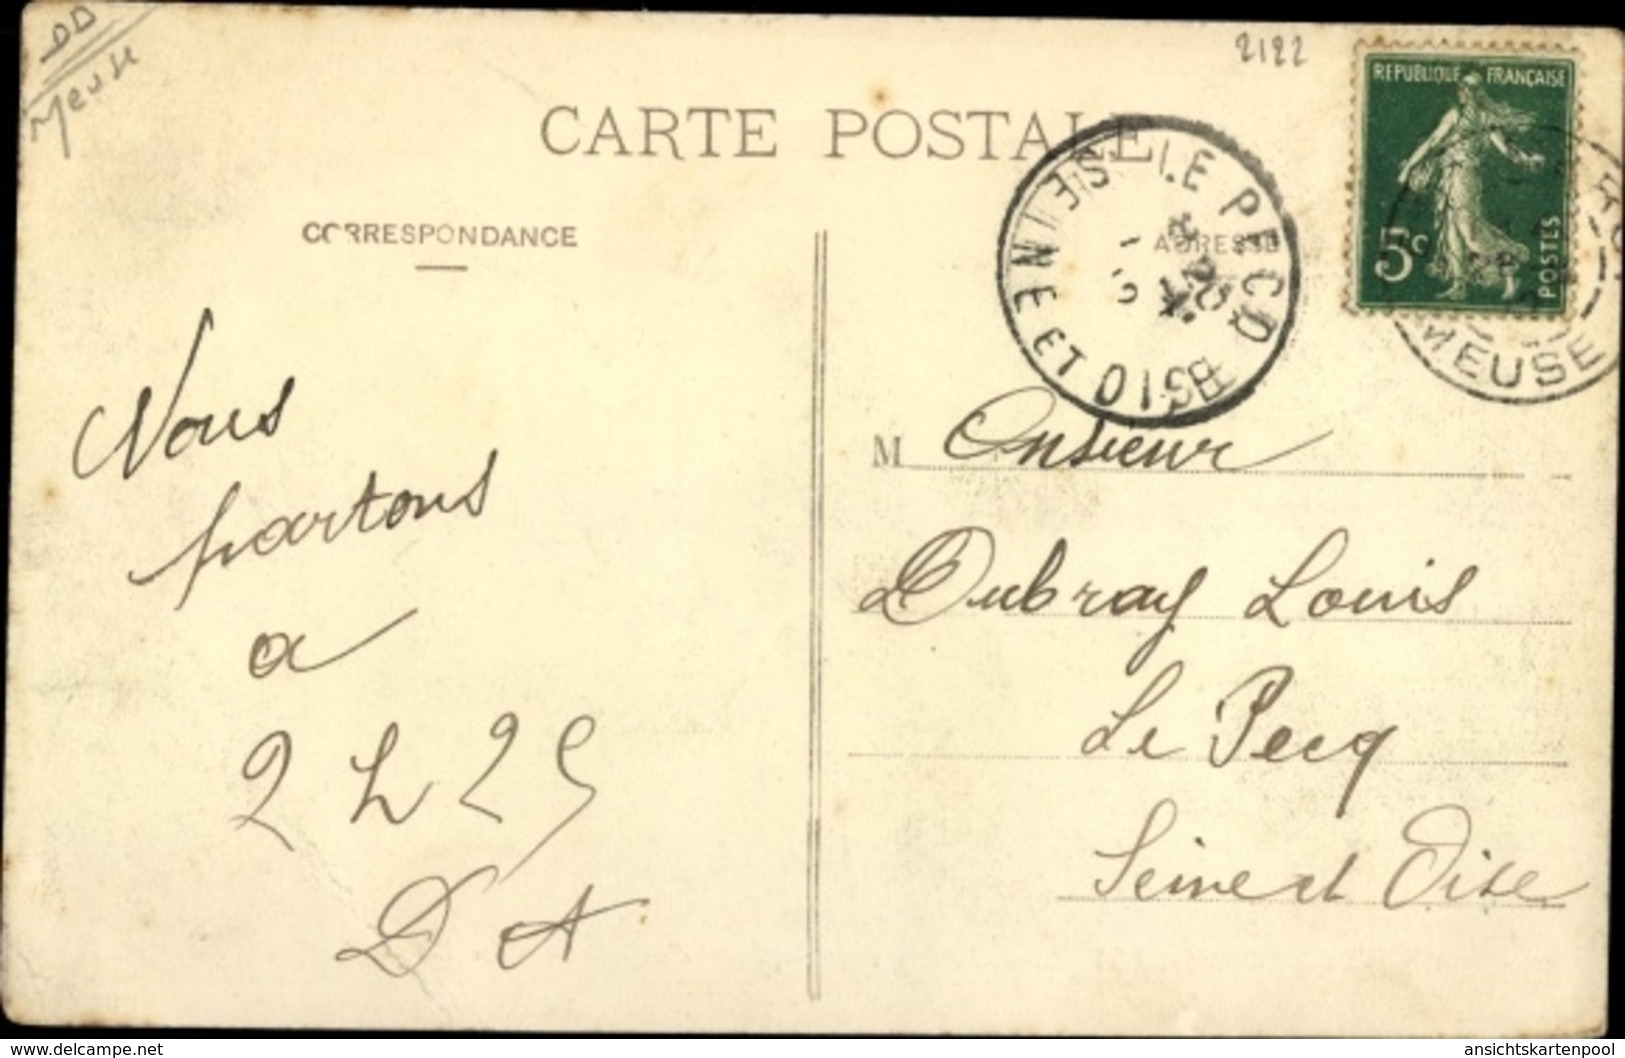 DD
Meuse
2122
REPUBLIQUE FRANÇAISE
5c
POSTES
CARTE POSTALE
LE PECQ
SEINE ET OISE
MEUSE
CORRESPONDANCE
ADRESSE
Nous
partons
a
2 h 25
D A
M Onsieur
Dubray Louis
Le Pecq
Seine et Oise
delcampe.net
ansichtskartenpool